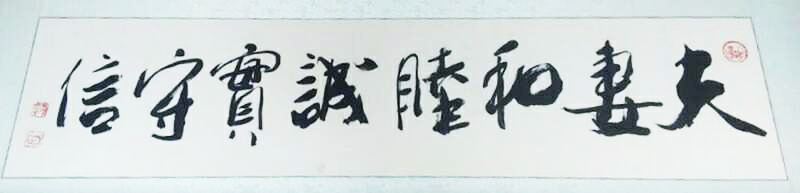 夫妻和睦誠實守信